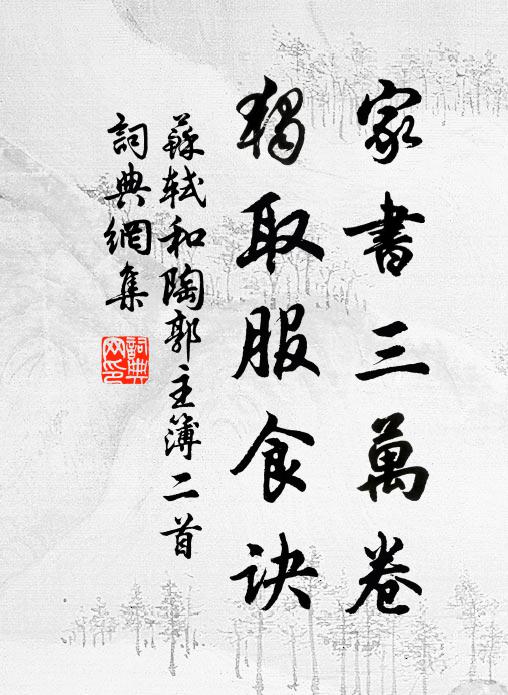 家書三萬卷
獨取服食訣
蘇軾和陶郭主簿二首
詞典網集
詞典網印